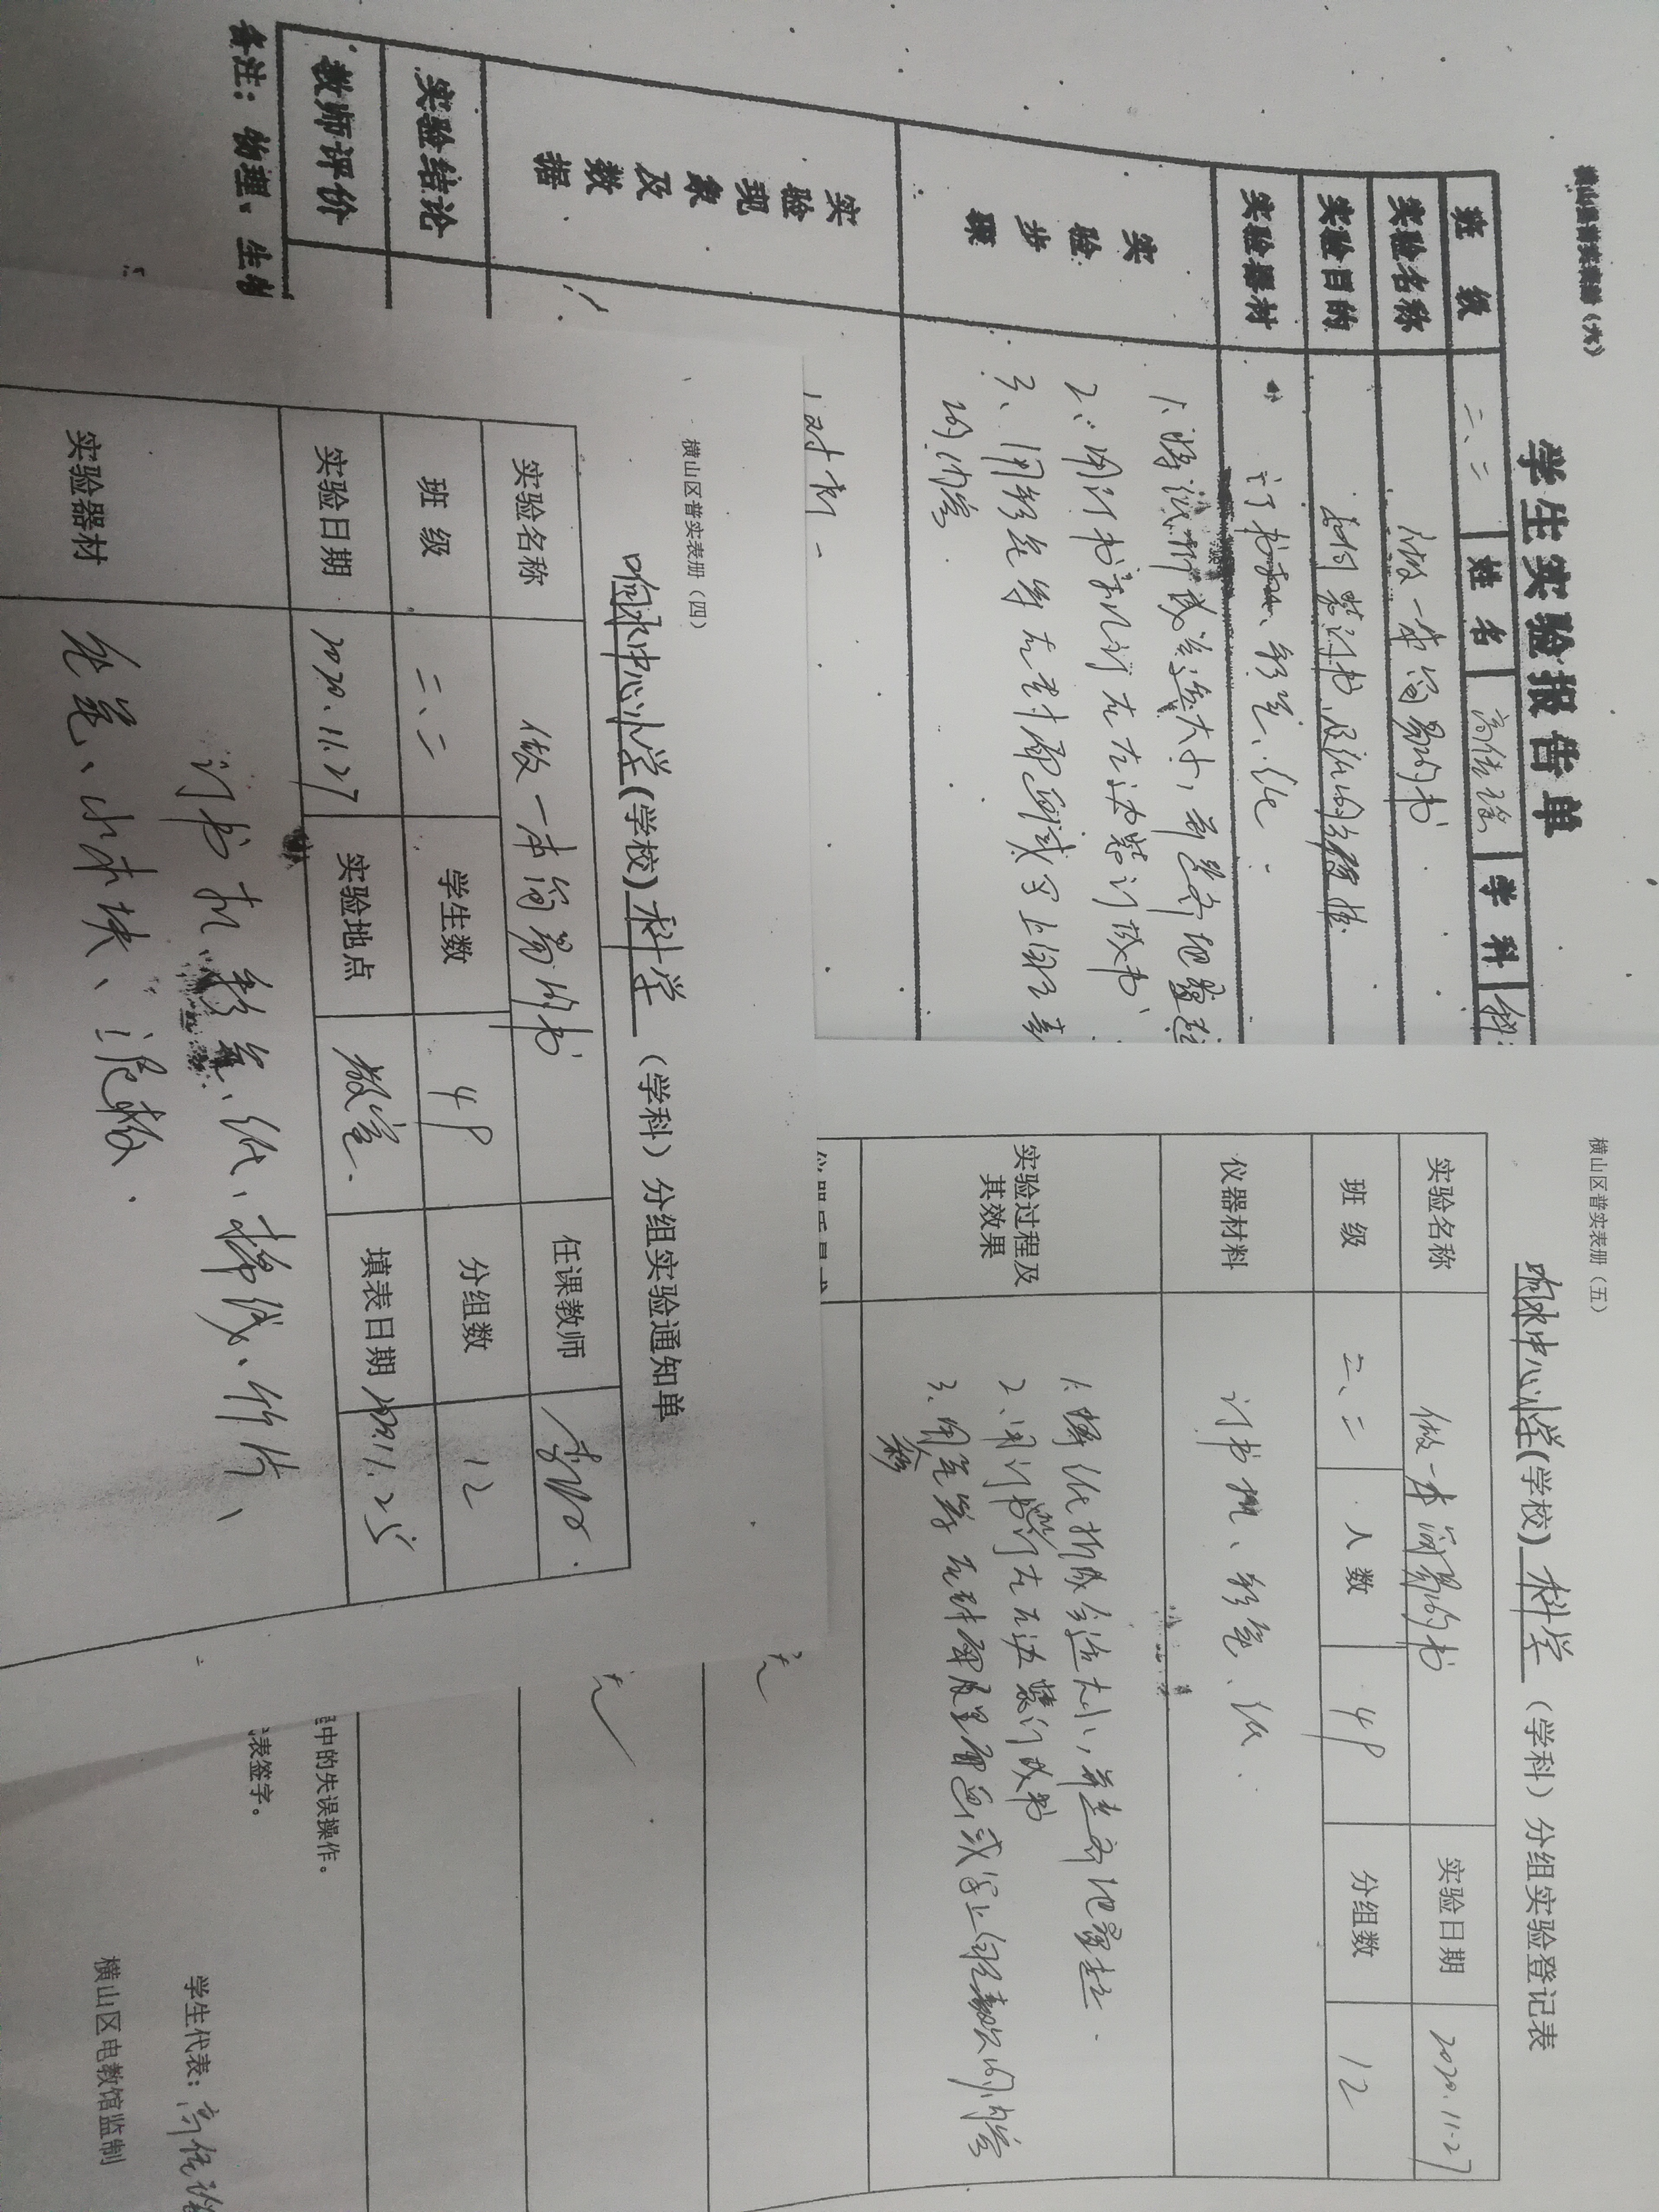 横山县普实表册（六）
学生实验报告单
班 级 二、二 姓 名 学 科 科
实验名称 做一本简易的书
实验目的
实验器材 订书机、铅笔、纸
实验步骤
1、将纸折成合适大小，并整齐地叠起
2、用订书机订在左边装订成书
3、用铅笔等在封面画或写上自己喜
的内容
实验现象及数据
实验结论
教师评价
备注：物理、生物
横山区普实表册（四）
响水中心小学(学校) 科学 （学科）分组实验通知单
实验名称 做一本简易的书 任课教师
班 级 二、二 学生数 49 分组数 12
实验日期 2020.11.27 实验地点 教室 填表日期
实验器材 订书机、彩笔、纸、棉线、竹片、
铅笔、小木块、泥板.
横山区普实表册（五）
响水中心小学(学校) 科学 （学科）分组实验登记表
实验名称 做一本简易的书 实验日期 2020.11.27
班 级 二、二 人 数 49 分组数 12
仪器材料 订书机、铅笔、纸.
实验过程及其效果
1、将纸折成合适大小，并整齐地叠起.
2、用订书机订在左边装订成书
程中的失误操作。
代表签字。
学生代表：
横山区电教馆监制